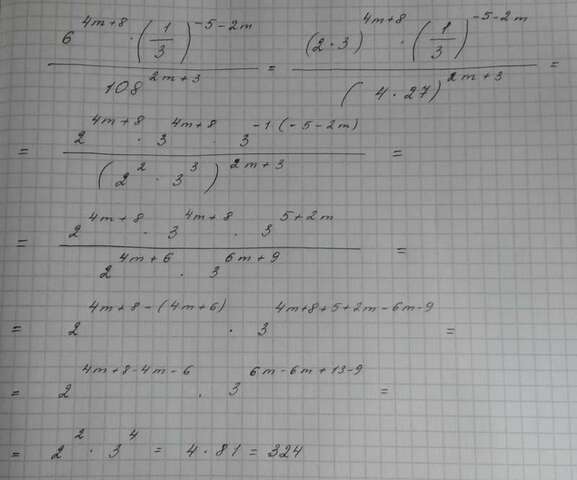 6^{4m+8} · (1/3)^{-5-2m} / 108^{2m+3} = (2·3)^{4m+8} · (1/3)^{-5-2m} / (4·27)^{2m+3} =
= 2^{4m+8} · 3^{4m+8} · 3^{-1(-5-2m)} / (2^2 · 3^3)^{2m+3} =
= 2^{4m+8} · 3^{4m+8} · 3^{5+2m} / 2^{4m+6} · 3^{6m+9} =
= 2^{4m+8-(4m+6)} · 3^{4m+8+5+2m-6m-9} =
= 2^{4m+8-4m-6} · 3^{6m-6m+13-9} =
= 2^2 · 3^4 = 4·81 = 324